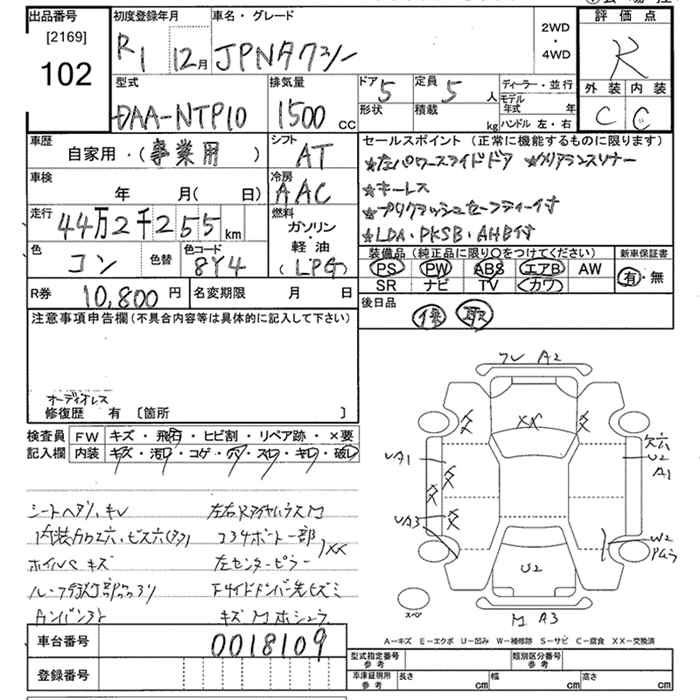 出品番号 初度登録年月 車名・グレード 2WD・4WD 評価点
[2169]
102 R1 12月 JPNタクシー R
型式 排気量 ドア 5 定員 5人 ディーラー・並行 外装 内装
DAA-NTP10 1500cc 形状 積載 kg モデル年式 年 C C
ハンドル 左・右
車歴 自家用・(事業用) シフト AT セールスポイント(正常に機能するものに限ります)
車検 年 月( 日) 冷房 AAC ★左パワースライドドア ★クリアランスソナー
★キーレス
走行 44万2千255km 燃料 ガソリン・軽油(LPG) ★プリクラッシュセーフティー付
★LDA・PKSB・AHB付
色 コン 色替 色コード 8Y4 装備品(純正品に限り○をつけてください) 新車保証書
PS PW ABS エアB AW 有・無
SR ナビ TV カワ
R券 10,800円 名変期限 月 日 後日品 保 取
注意事項申告欄(不具合内容等は具体的に記入して下さい)
オーディオレス
修復歴 有 [箇所 ]
検査員 FW キズ・飛石・ヒビ割・リペア跡・×要
記入欄 内装 キズ・汚レ・コゲ・穴・スレ・キレ・破レ
フレ A2
XX
UA1
欠穴
U2
A1
UA3
W2
U2
スペ
M A3
シートヘタリ、キレ
ホイルCキズ
左センターピラー
A-キズ E-エクボ U-凹み W-補修跡 S-サビ C-腐食 XX-交換済
車台番号 0018109
型式指定番号 参考 類別区分番号 参考
登録番号 車庫証明用 参考 長さ cm 幅 cm 高さ cm